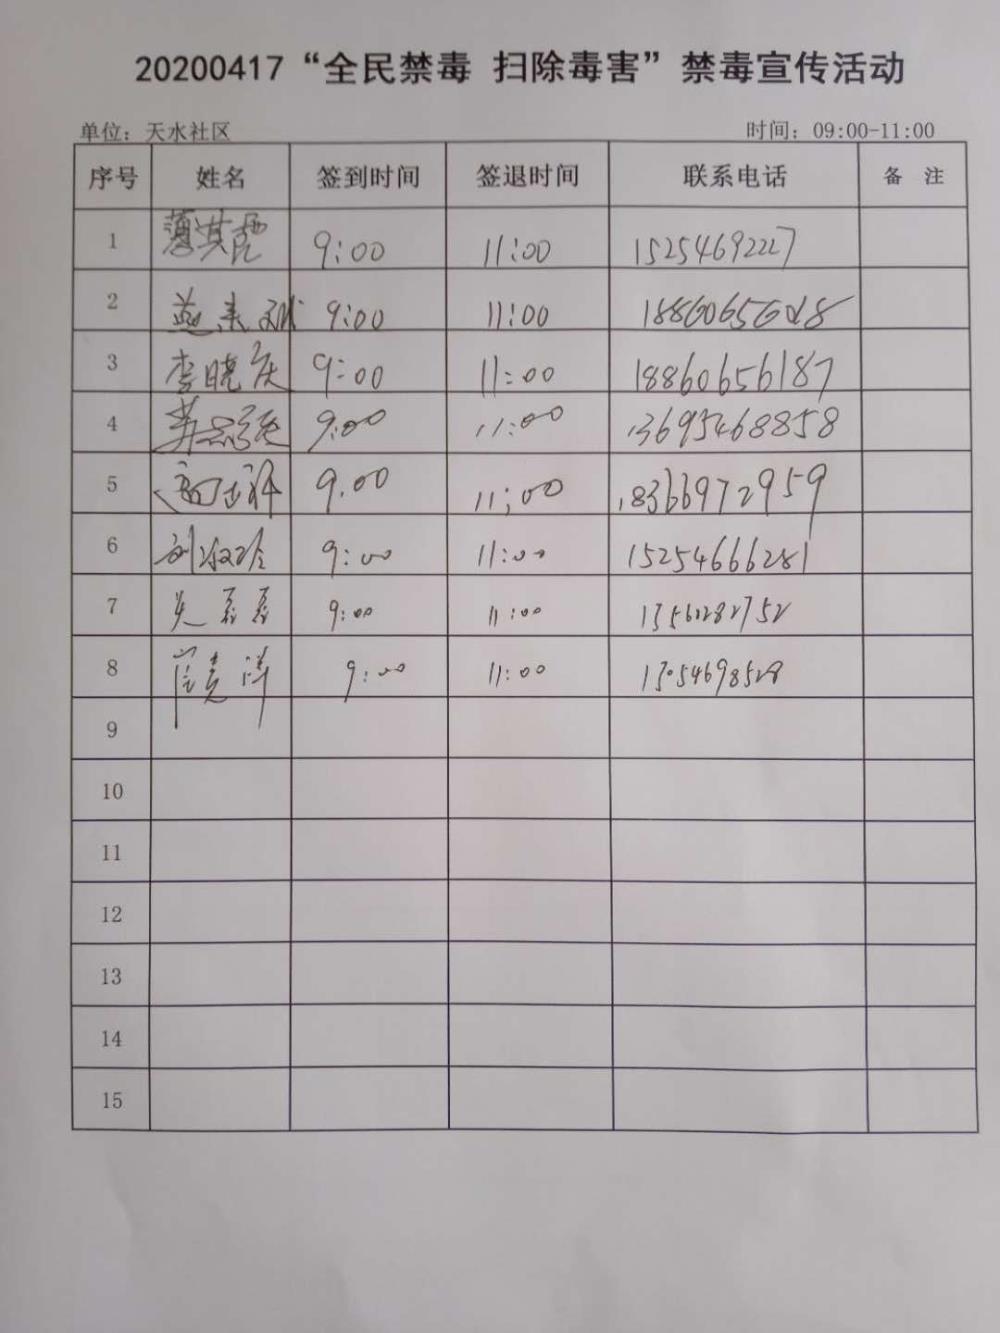 20200417“全民禁毒 扫除毒害”禁毒宣传活动
单位：天水社区 时间：09:00-11:00
序号 姓名 签到时间 签退时间 联系电话 备 注
1 薄其霞 9:00 11:00 15254692227
2 9:00 11:00
3 李晓庆 9:00 11:00 18860656187
4 9:00 11:00 13695468858
5 9.00 11:00 18366972959
6 刘淑玲 9:00 11:00 15254666281
7 9:00 11:00
8 崔亮洋 9:00 11:00 13054698528
9
10
11
12
13
14
15